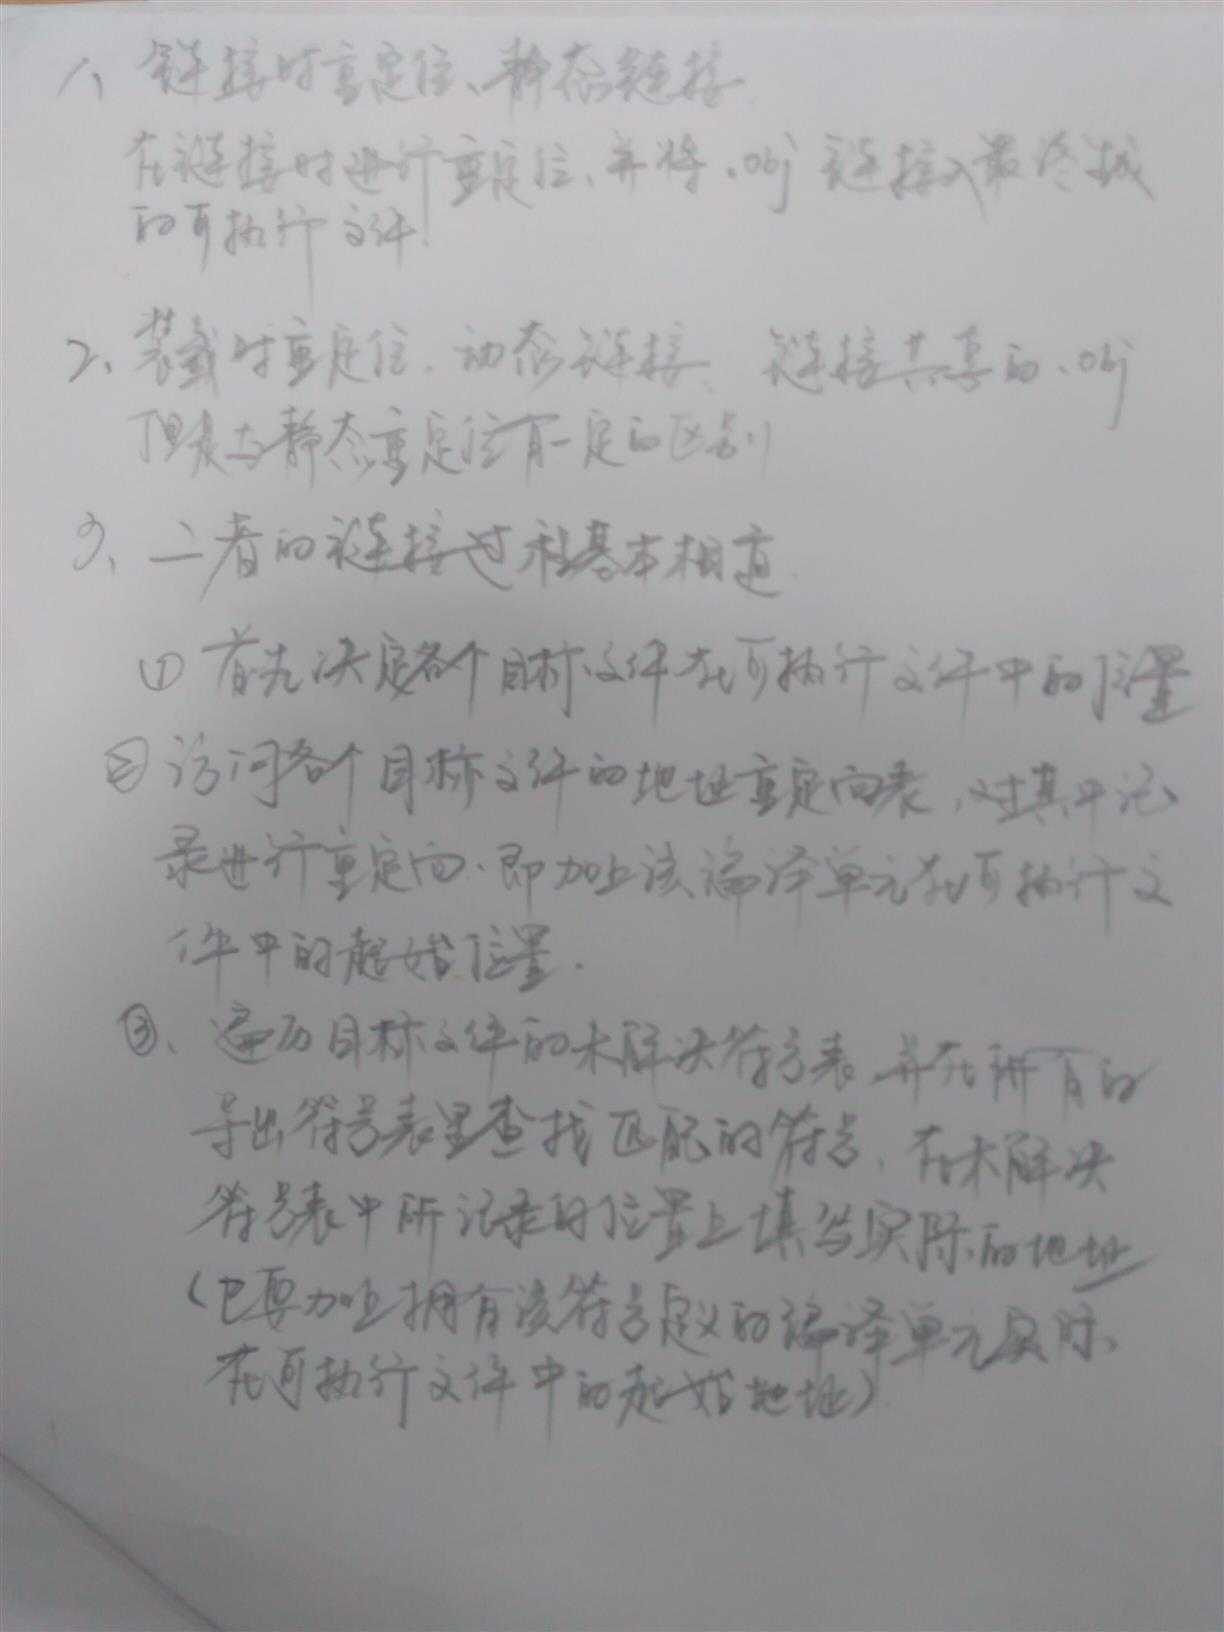 1、链接时重定位、静态链接
在链接时进行重定位、并将.obj 链接入最终
的可执行文件.
2、装载时重定位.动态链接、链接共享的.obj
但是与静态重定位有一定的区别
3、二者的链接过程基本相
① 首先决定各个目标文件在可执行文件中的位置
② 访问各个目标文件的地址重定向表,对其中记
录进行重定向.即加上该编译单元在可执行文
件中的起始位置.
③、遍历目标文件的未解决符号表,并在所有的
导出符号表里查找匹配的符号,在未解决
符号表中所记录的位置上填写实际的地址
(也要加上拥有该符号定义的编译单元实际
在可执行文件中的起始地址)